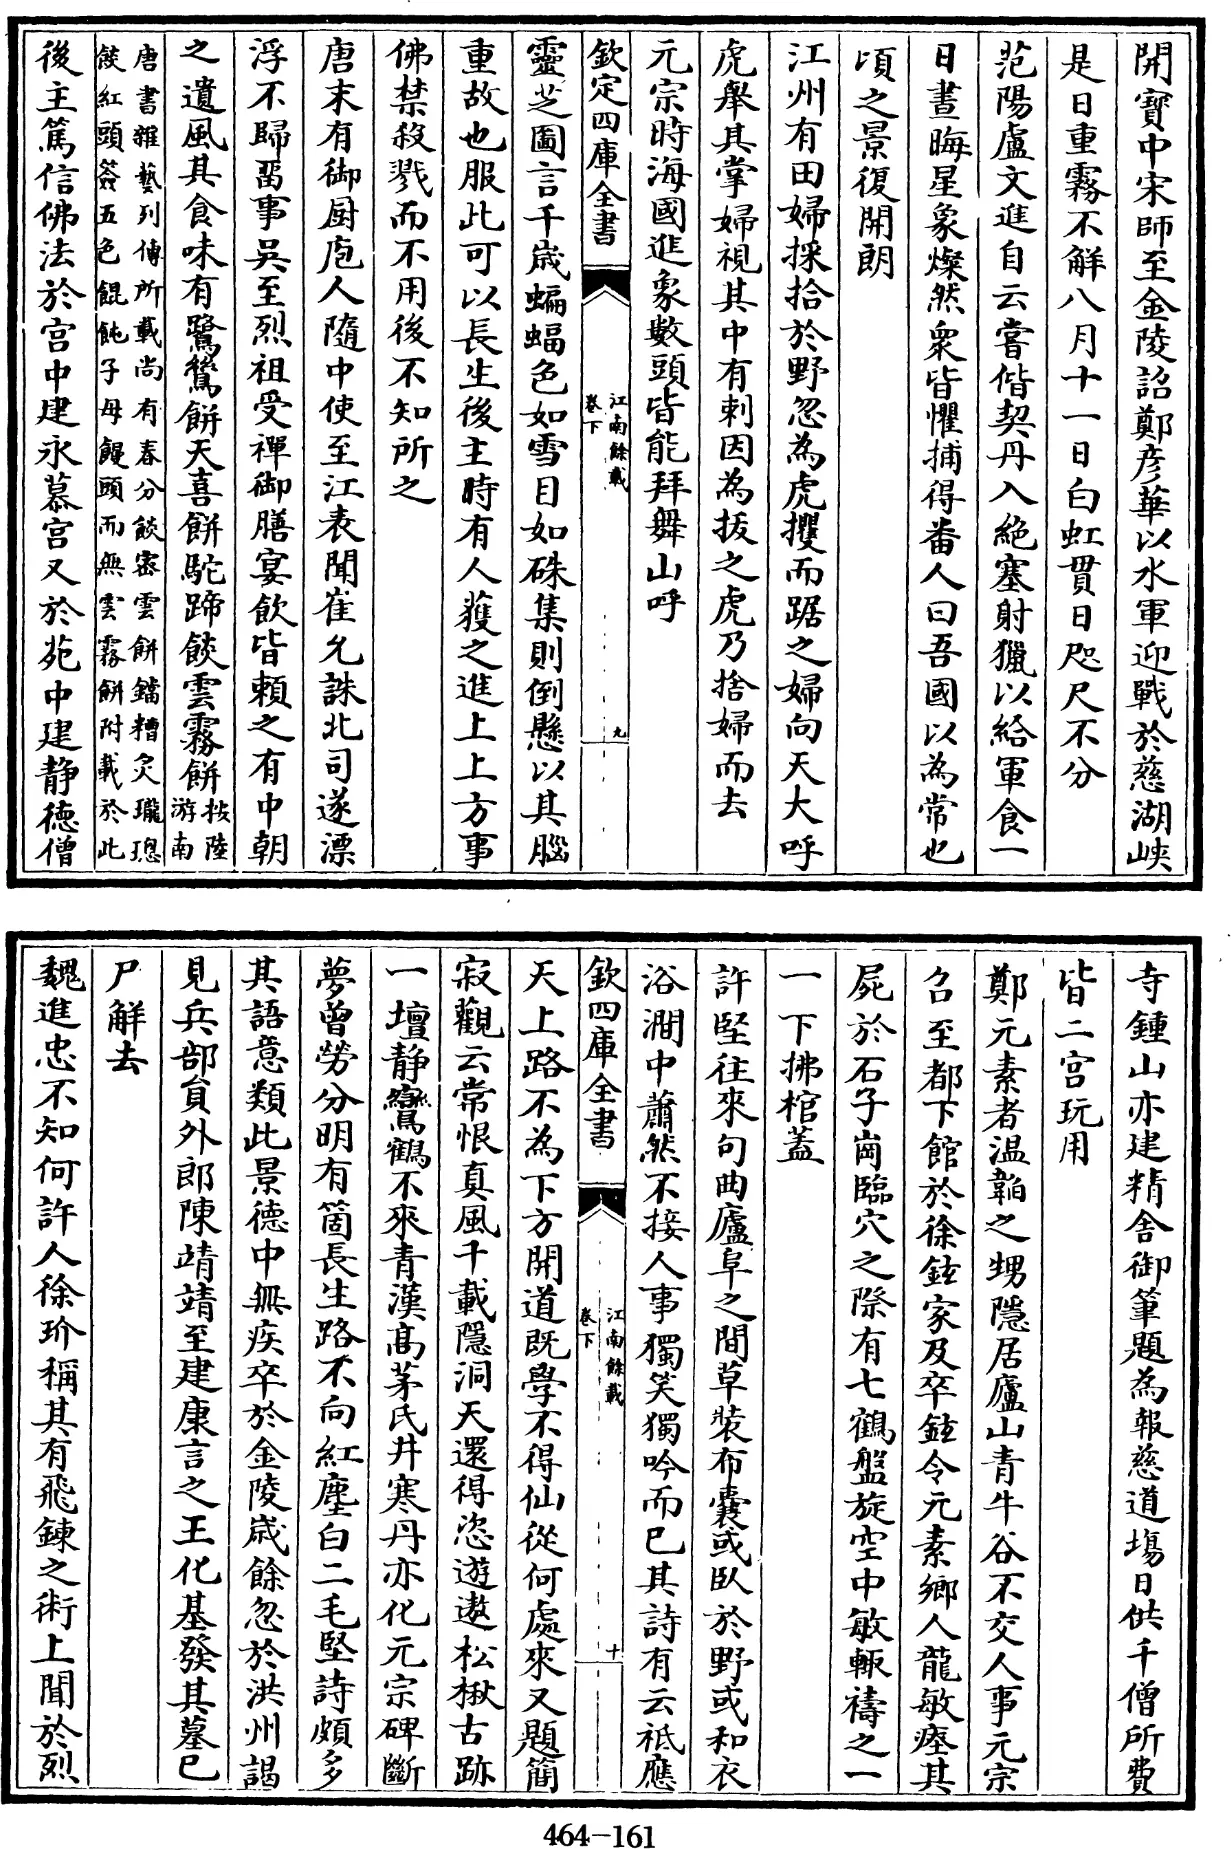 開寶中宋師至金陵詔鄭彦華以水軍迎戰於慈湖峽
是日重霧不解八月十一日白虹貫日咫尺不分
范陽盧文進自云嘗偕契丹入絶塞射獵以給軍食一
日晝晦星象燦然衆皆懼捕得番人曰吾國以為常也
頃之景復開朗
江州有田婦採拾於野忽為虎攫而踞之婦向天大呼
虎舉其掌婦視其中有刺因為拔之虎乃捨婦而去
元宗時海國進象數頭皆能拜舞山呼
欽定四庫全書
江南餘載
卷下
九
靈芝圖言千歲蝙蝠色如雪目如硃集則倒懸以其腦
重故也服此可以長生後主時有人獲之進上上方事
佛禁殺戮而不用後不知所之
唐末有御厨庖人隨中使至江表聞崔允誅北司遂漂
浮不歸留事吳至烈祖受禪御膳宴飲皆賴之有中朝
之遺風其食味有鷺鷥餅天喜餅駝蹄餤雲霧餅按陸游南
唐書雜藝列傳所載尚有春分餤密雲餅鐺糟炙瓏璁
餤紅頭簽五色餛飩子母饅頭而無雲霧餅附載於此
後主篤信佛法於宫中建永慕宫又於苑中建静德僧
寺鍾山亦建精舍御筆題為報慈道塲日供千僧所費
皆二宫玩用
鄭元素者温韜之甥隱居廬山青牛谷不交人事元宗
召至都下館於徐鉉家及卒鉉令元素鄉人龍敏瘞其
屍於石子崗臨穴之際有七鶴盤旋空中敏輙禱之一
一下拂棺葢
許堅往來句曲廬阜之間草裝布囊或臥於野或和衣
浴澗中蕭然不接人事獨笑獨吟而已其詩有云祗應
欽四庫全書
江南餘載
卷下
十
天上路不為下方開道既學不得仙從何處來又題簡
寂觀云常恨真風千載隱洞天還得恣遊遨松楸古跡
一壇静鸞鶴不來青漢髙茅氏井寒丹亦化元宗碑斷
夢曾勞分明有箇長生路不向紅塵白二毛堅詩頗多
其語意類此景德中無疾卒於金陵歲餘忽於洪州謁
見兵部員外郎陳靖靖至建康言之王化基發其墓已
尸解去
魏進忠不知何許人徐玠稱其有飛鍊之術上聞於烈
464-161